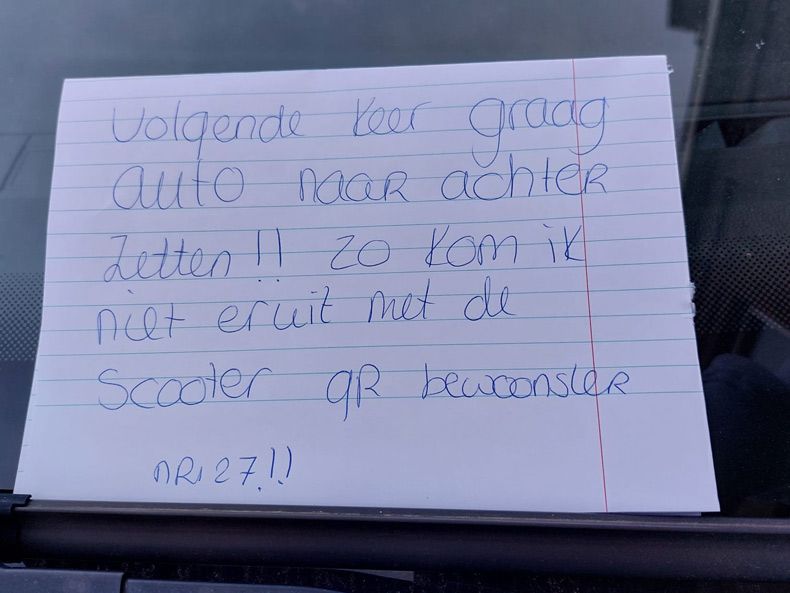 Volgende keer graag
auto naar achter
zetten!! zo kom ik
niet eruit met de
Scooter gR bewoonster
nR. 27!!